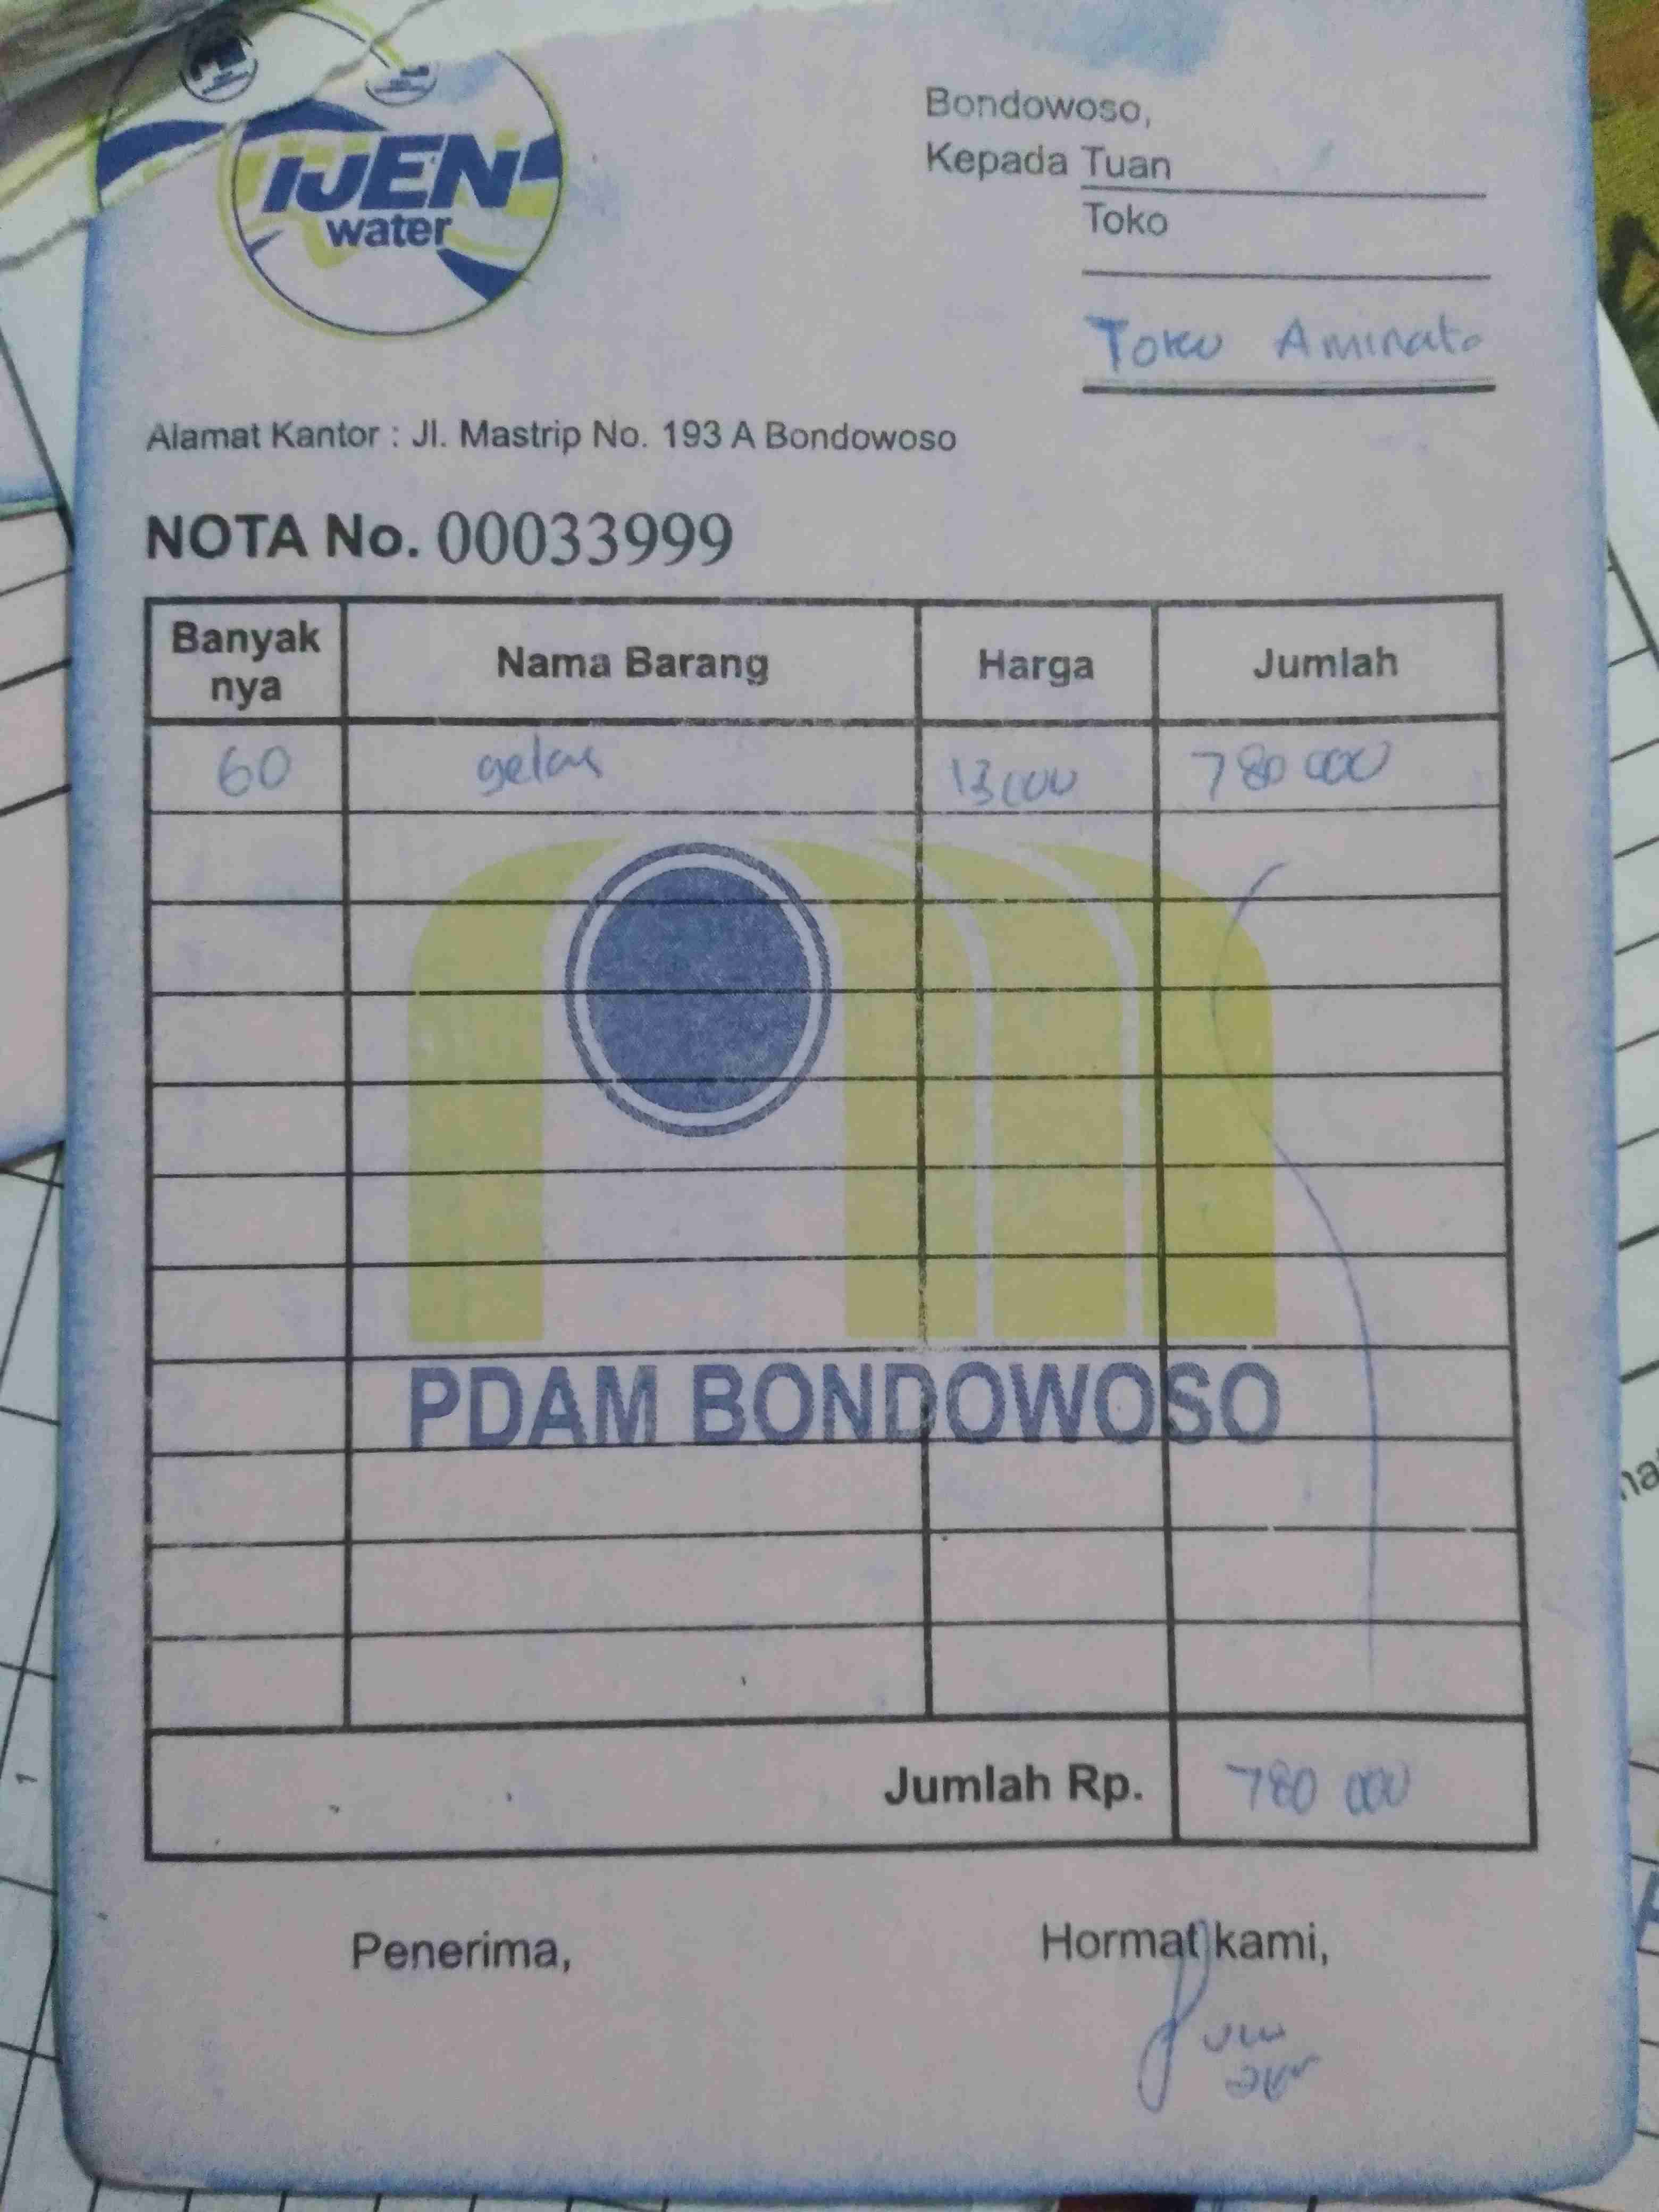 IJEN
water
Bondowoso,
Kepada Tuan
Toko
Toko Aminata
Alamat Kantor : Jl. Mastrip No. 193 A Bondowoso
NOTA No. 00033999
Banyak nya Nama Barang Harga Jumlah
60 gelas 13000 780 000
PDAM BONDOWOSO
Jumlah Rp. 780 000
Penerima, Hormat kami,